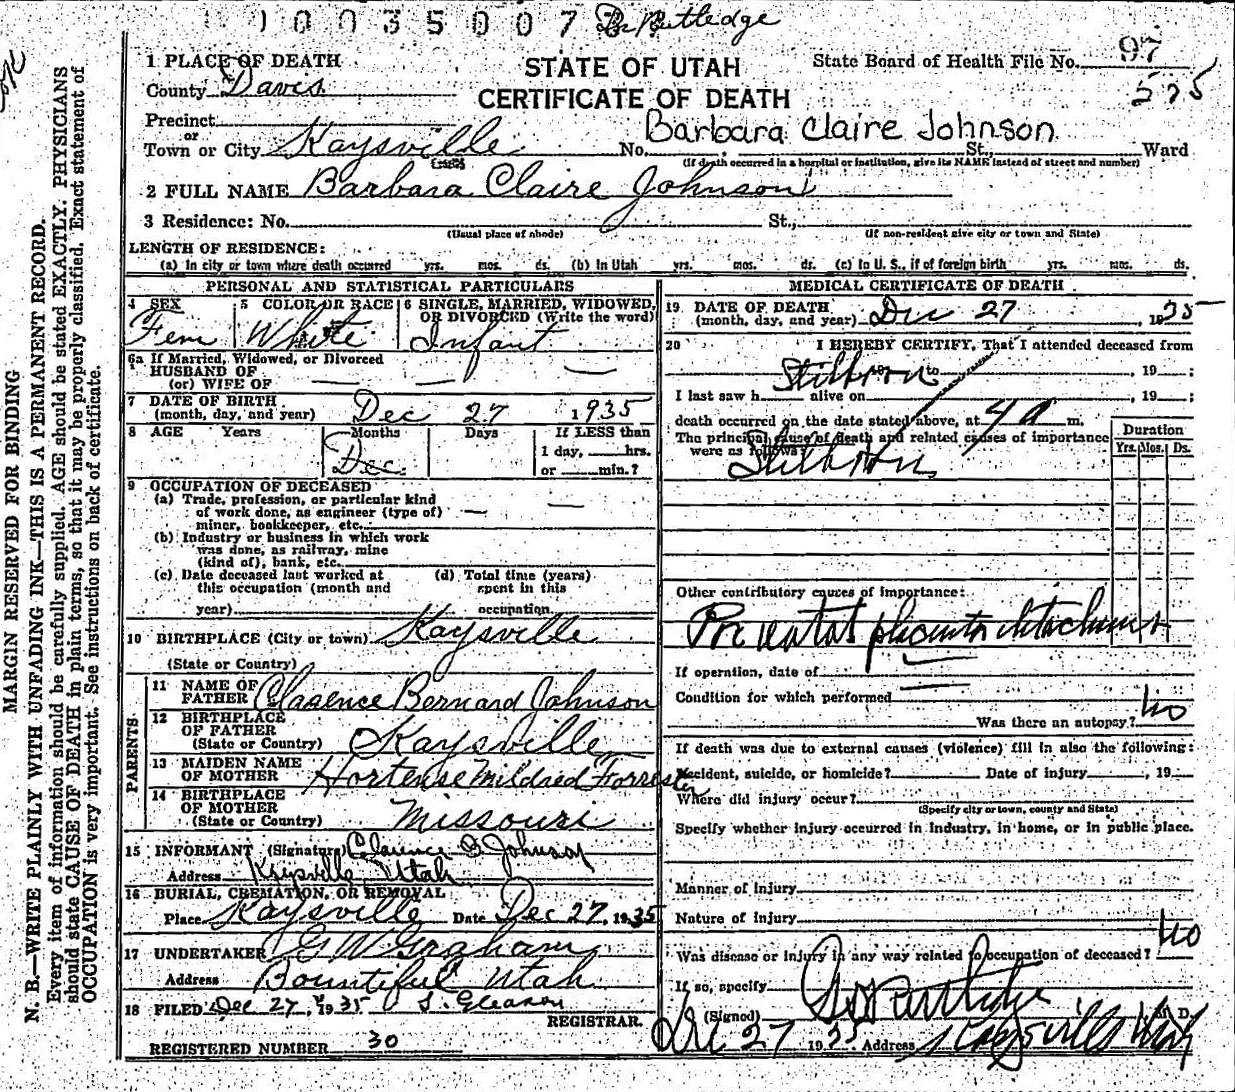 10035007 Dr Rutledge
STATE OF UTAH
CERTIFICATE OF DEATH
State Board of Health File No. 97
575
1 PLACE OF DEATH
County Davis
Precinct
or
Town or City Kaysville No. St., Ward
Barbara Claire Johnson
(If death occurred in a hospital or institution, give its NAME instead of street and number)
2 FULL NAME Barbara Claire Johnson
3 Residence: No. St.,
(Usual place of abode) (If non-resident give city or town and State)
LENGTH OF RESIDENCE:
(a) In city or town where death occurred yrs. mos. ds. (b) In Utah yrs. mos. ds. (c) In U. S., if of foreign birth yrs. mos. ds.
PERSONAL AND STATISTICAL PARTICULARS
4 SEX
Fem
5 COLOR OR RACE
White
6 SINGLE, MARRIED, WIDOWED,
OR DIVORCED (Write the word)
Infant
6a If Married, Widowed, or Divorced
HUSBAND OF
(or) WIFE OF
7 DATE OF BIRTH
(month, day, and year) Dec 27 1935
8 AGE Years Months Days If LESS than
Dec 1 day, hrs.
or min.?
9 OCCUPATION OF DECEASED
(a) Trade, profession, or particular kind
of work done, as engineer (type of)
miner, bookkeeper, etc.
(b) Industry or business in which work
was done, as railway, mine
(kind of), bank, etc.
(c) Date deceased last worked at
this occupation (month and
year)
(d) Total time (years)
spent in this
occupation
10 BIRTHPLACE (City or town) Kaysville
(State or Country)
PARENTS
11 NAME OF
FATHER Clarence Bernard Johnson
12 BIRTHPLACE
OF FATHER
(State or Country) Kaysville
13 MAIDEN NAME
OF MOTHER Hortense Mildred Forrester
14 BIRTHPLACE
OF MOTHER
(State or Country) Missouri
15 INFORMANT (Signature) Clarence B. Johnson
Address Kaysville, Utah
16 BURIAL, CREMATION, OR REMOVAL
Place Kaysville Date Dec 27, 1935
17 UNDERTAKER G W Graham
Address Bountiful Utah
18 FILED Dec 27, 1935 S. Gleason
REGISTRAR.
REGISTERED NUMBER 30
MEDICAL CERTIFICATE OF DEATH
19 DATE OF DEATH
(month, day, and year) Dec 27, 1935
20 I HEREBY CERTIFY, That I attended deceased from
Stillborn to , 19 ;
I last saw h alive on , 19 ;
death occurred on the date stated above, at 4 a m.
The principal cause of death and related causes of importance
were as follows:
Stillborn
Duration
Yrs. Mos. Ds.
Other contributory causes of importance:
placenta detachment
If operation, date of
Condition for which performed
Was there an autopsy? No
If death was due to external causes (violence) fill in also the following:
Accident, suicide, or homicide? Date of injury , 19
Where did injury occur?
(Specify city or town, county and State)
Specify whether injury occurred in industry, in home, or in public place.
Manner of injury
Nature of injury
Was disease or injury in any way related to occupation of deceased? No
If so, specify
(Signed) Rutledge M. D.
Dec 27 1935 Address Kaysville Utah
MARGIN RESERVED FOR BINDING
N. B.—WRITE PLAINLY WITH UNFADING INK—THIS IS A PERMANENT RECORD.
Every item of information should be carefully supplied. AGE should be stated EXACTLY. PHYSICIANS
should state CAUSE OF DEATH in plain terms, so that it may be properly classified. Exact statement of
OCCUPATION is very important. See instructions on back of certificate.